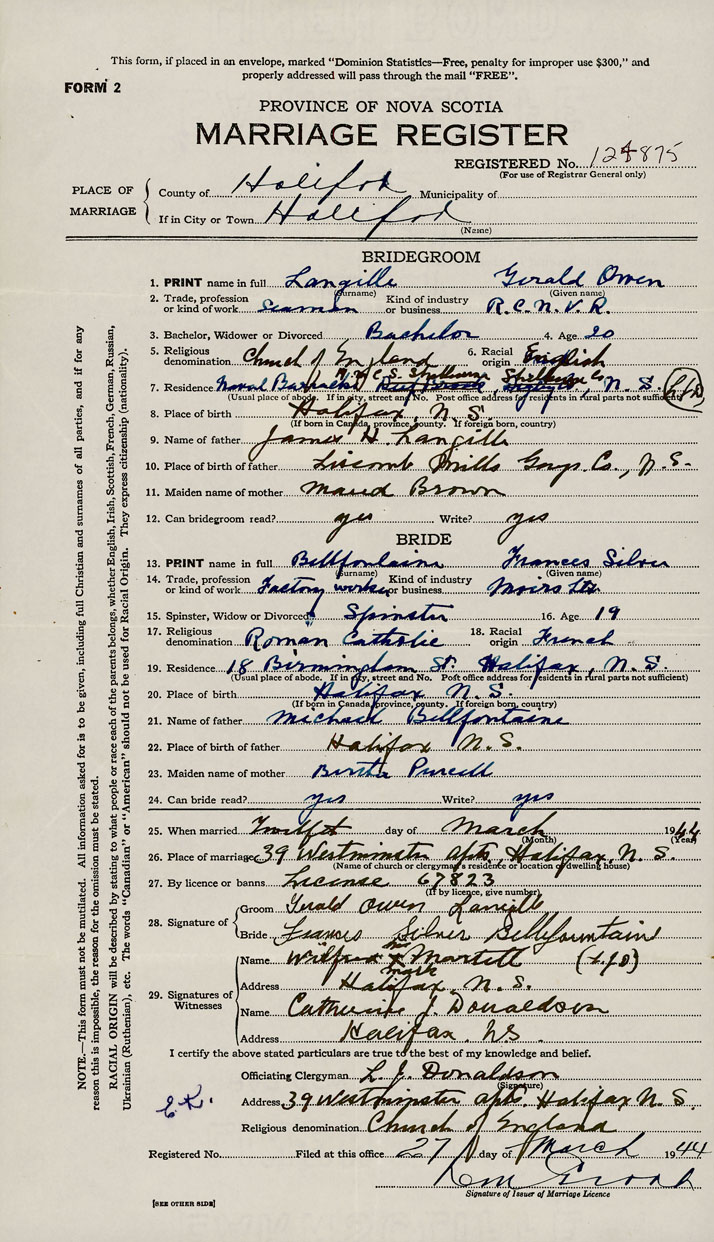 This form, if placed in an envelope, marked "Dominion Statistics—Free, penalty for improper use $300," and
properly addressed will pass through the mail "FREE".
FORM 2
PROVINCE OF NOVA SCOTIA
MARRIAGE REGISTER
REGISTERED No. 124875
(For use of Registrar General only)
PLACE OF MARRIAGE
County of Halifax Municipality of
If in City or Town Halifax
(Name)
BRIDEGROOM
1. PRINT name in full Langille Gerald Owen
(Surname) (Given name)
2. Trade, profession or kind of work Seaman Kind of industry or business R.C.N.V.R.
3. Bachelor, Widower or Divorced Bachelor 4. Age 20
5. Religious denomination Church of England 6. Racial origin English
7. Residence Naval Barracks N.S.
(Usual place of abode. If in city, street and No. Post office address for residents in rural parts not sufficient)
8. Place of birth Halifax, N.S.
(If born in Canada, province, county. If foreign born, country)
9. Name of father James H. Langille
10. Place of birth of father Liscomb Mills Guys. Co., N.S.
11. Maiden name of mother Maud Brown
12. Can bridegroom read? yes Write? yes
BRIDE
13. PRINT name in full Bellfontaine Frances Silver
(Surname) (Given name)
14. Trade, profession or kind of work Factory worker Kind of industry or business Moirs Ltd.
15. Spinster, Widow or Divorced Spinster 16. Age 19
17. Religious denomination Roman Catholic 18. Racial origin French
19. Residence 18 Birmingham St. Halifax, N.S.
(Usual place of abode. If in city, street and No. Post office address for residents in rural parts not sufficient)
20. Place of birth Halifax N.S.
(If born in Canada, province, county. If foreign born, country)
21. Name of father Michael Bellfontaine
22. Place of birth of father Halifax N.S.
23. Maiden name of mother Bertha Purcell
24. Can bride read? yes Write? yes
25. When married Twelfth day of March 1944
(Month) (Year)
26. Place of marriage 39 Westminster apts, Halifax, N.S.
(Name of church or clergyman's residence or location of dwelling house)
27. By licence or banns License 67823
(If by licence, give number)
28. Signature of
Groom Gerald Owen Langille
Bride Frances Silver Bellefountaine
29. Signatures of Witnesses
Name Wilfred x Martell
his
mark
Address Halifax, N.S.
Name Catherine J. Donaldson
Address Halifax, N.S.
I certify the above stated particulars are true to the best of my knowledge and belief.
Officiating Clergyman L. J. Donaldson
(Signature)
Address 39 Westminster apts. Halifax N.S.
Religious denomination Church of England
Registered No. Filed at this office 27 day of March 1944
Signature of Issuer of Marriage Licence
[SEE OTHER SIDE]
NOTE.—This form must not be mutilated. All information asked for is to be given, including full Christian and surnames of all parties, and if for any
reason this is impossible, the reason for the omission must be stated.
RACIAL ORIGIN will be described by stating to what people or race each of the parents belongs, whether English, Irish, Scottish, French, German, Russian,
Ukrainian (Ruthenian), etc. The words "Canadian" or "American" should not be used for Racial Origin. They express citizenship (nationality).